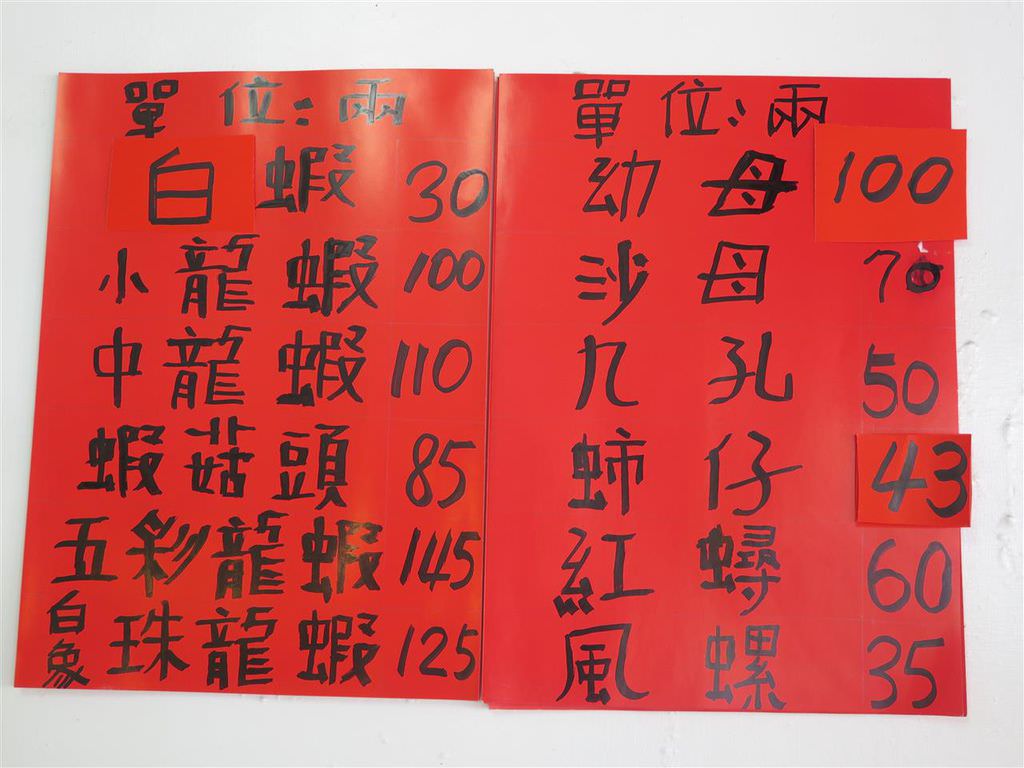 單位:兩
白蝦 30
小龍蝦 100
中龍蝦 110
蝦菇頭 85
五彩龍蝦 145
白象珠龍蝦 125
單位:兩
幼母 100
沙母 70
九孔 50
蚵仔 43
紅蟳 60
風螺 35